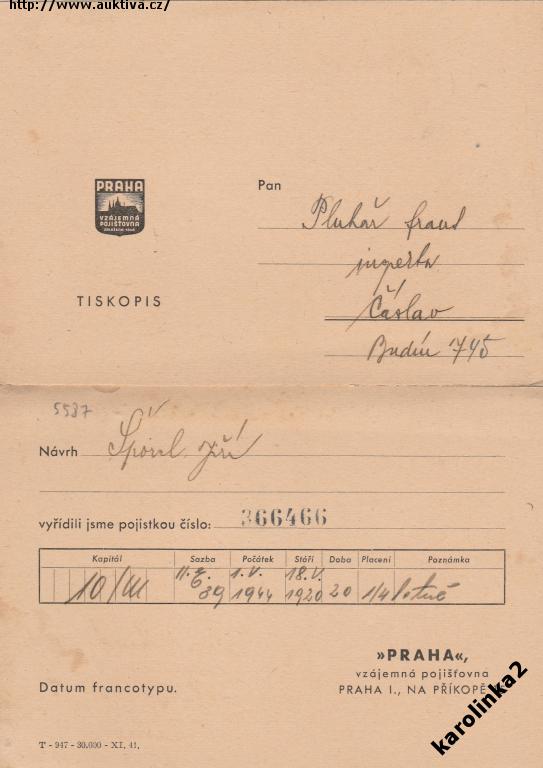 http://www.auktiva.cz/
PRAHA
VZÁJEMNÁ
POJIŠŤOVNA
Pan
Pluhař
TISKOPIS
Čáslav
Budín 745
5587
Návrh Jiří
vyřídili jsme pojistkou číslo: 366466
Kapitál Sazba Počátek Stáří Doba Placení Poznámka
1.V. 18.V.
10/ 39 1944 1920 20 1/4 letně
»PRAHA«,
vzájemná pojišťovna
Datum francotypu. PRAHA I., NA PŘÍKOPĚ
karolinka2
T - 947 - 30.000 - XI, 41.